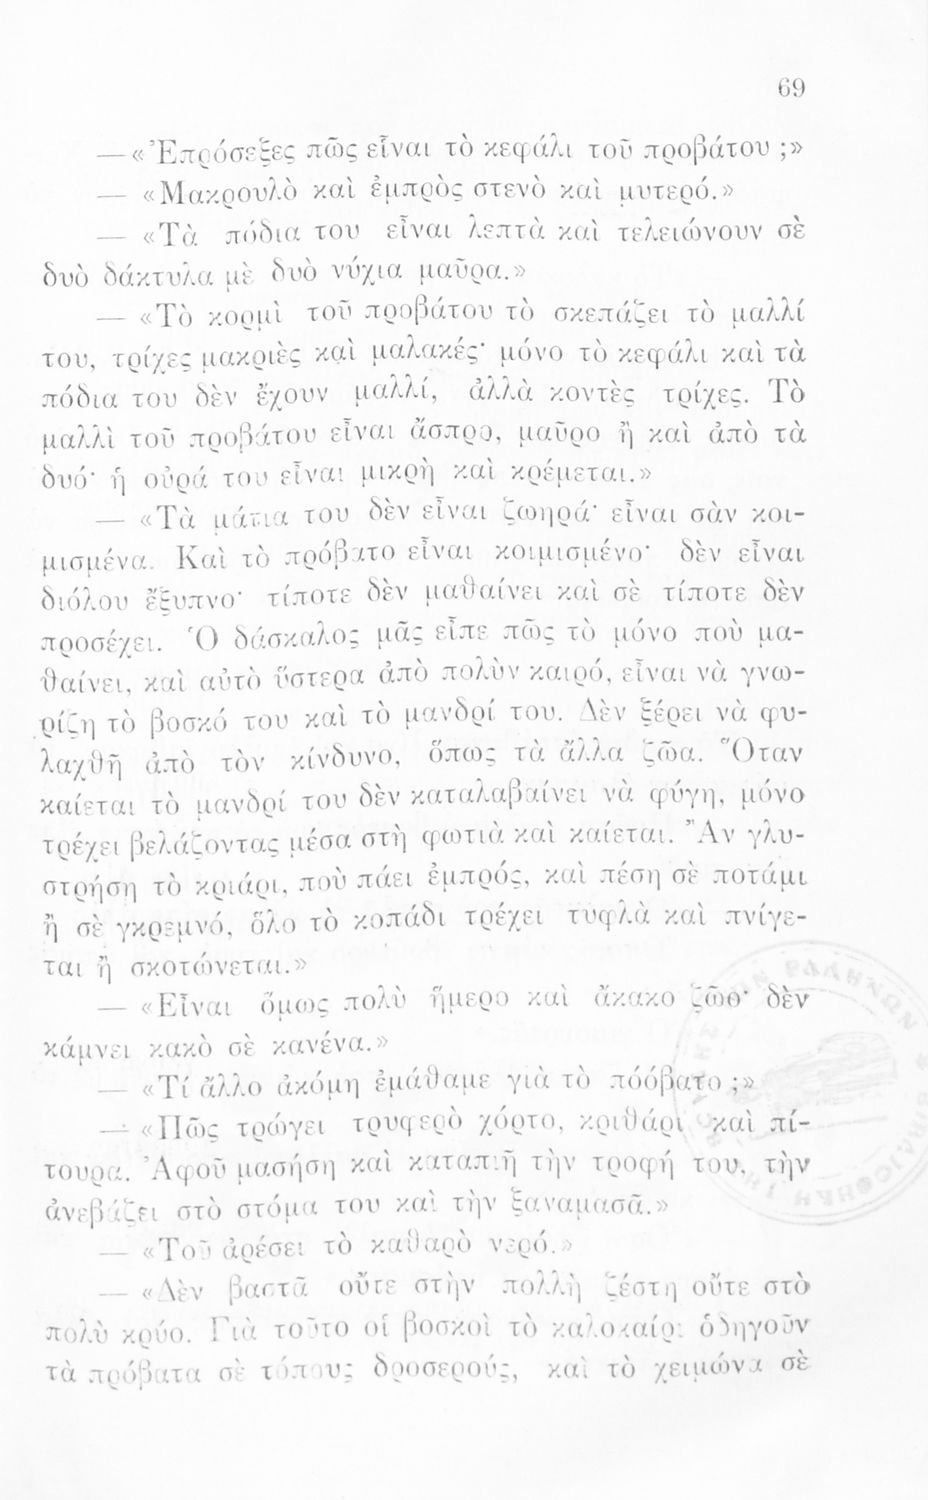 69
— «Ἐπρόσεξες πῶς εἶναι τὸ κεφάλι τοῦ προβάτου ;»
— «Μακρουλὸ καὶ ἐμπρὸς στενὸ καὶ μυτερό.»
— «Τὰ πόδια του εἶναι λεπτὰ καὶ τελειώνουν σὲ
δυὸ δάκτυλα μὲ δυὸ νύχια μαῦρα.»
— «Τὸ κορμὶ τοῦ προβάτου τὸ σκεπάζει τὸ μαλλί
του, τρίχες μακριὲς καὶ μαλακές· μόνο τὸ κεφάλι καὶ τὰ
πόδια του δὲν ἔχουν μαλλί, ἀλλὰ κοντὲς τρίχες. Τὸ
μαλλὶ τοῦ προβάτου εἶναι ἄσπρο, μαῦρο ἢ καὶ ἀπὸ τὰ
δυό· ἡ οὐρά του εἶναι μικρὴ καὶ κρέμεται.»
— «Τὰ μάτια του δὲν εἶναι ζωηρά· εἶναι σὰν κοι-
μισμένα. Καὶ τὸ πρόβατο εἶναι κοιμισμένο· δὲν εἶναι
διόλου ἔξυπνο· τίποτε δὲν μαθαίνει καὶ σὲ τίποτε δὲν
προσέχει. Ὁ δάσκαλος μᾶς εἶπε πῶς τὸ μόνο ποὺ μα-
θαίνει, καὶ αὐτὸ ὕστερα ἀπὸ πολὺν καιρό, εἶναι νὰ γνω-
ρίζῃ τὸ βοσκό του καὶ τὸ μανδρί του. Δὲν ξέρει νὰ φυ-
λαχθῇ ἀπὸ τὸν κίνδυνο, ὅπως τὰ ἄλλα ζῶα. Ὅταν
καίεται τὸ μανδρί του δὲν καταλαβαίνει νὰ φύγῃ, μόνο
τρέχει βελάζοντας μέσα στὴ φωτιὰ καὶ καίεται. Ἂν γλυ-
στρήσῃ τὸ κριάρι, ποὺ πάει ἐμπρός, καὶ πέσῃ σὲ ποτάμι
ἢ σὲ γκρεμνό, ὅλο τὸ κοπάδι τρέχει τυφλὰ καὶ πνίγε-
ται ἢ σκοτώνεται.»
— «Εἶναι ὅμως πολὺ ἥμερο καὶ ἄκακο ζῶο· δὲν
κάμνει κακὸ σὲ κανένα.»
— «Τί ἄλλο ἀκόμη ἐμάθαμε γιὰ τὸ πόόβατο ;»
— «Πῶς τρώγει τρυφερὸ χόρτο, κριθάρι καὶ πί-
τουρα. Ἀφοῦ μασήσῃ καὶ καταπιῇ τὴν τροφή του, τὴν
ἀνεβάζει στὸ στόμα του καὶ τὴν ξαναμασᾶ.»
— «Τοῦ ἀρέσει τὸ καθαρὸ νερό.»
— «Δὲν βαστᾶ οὔτε στὴν πολλὴ ζέστη οὔτε στὸ
πολὺ κρύο. Γιὰ τοῦτο οἱ βοσκοὶ τὸ καλοκαίρι ὁδηγοῦν
τὰ πρόβατα σὲ τόπους δροσερούς, καὶ τὸ χειμώνα σὲ